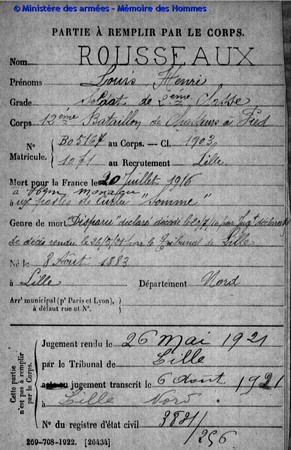 © Ministère des armées - Mémoire des Hommes
PARTIE À REMPLIR PAR LE CORPS.
Nom ROUSSEAUX
Prénoms Louis Henri
Grade Soldat de 2ème Classe
Corps 12ème Bataillon de Chasseurs à Pied
N° Matricule. au Corps. — Cl. 1903
1071 au Recrutement Lille
Mort pour la France le 20 Juillet 1916
à
"Somme"
Genre de mort "Disparu" déclaré décédé
de décès rendu le par le Tribunal de Lille
Né le 8 Août 1883
à Lille Département Nord
Arrt municipal (pr Paris et Lyon),
à défaut rue et N°.
Cette partie n'est pas à remplir par le Corps.
Jugement rendu le 26 Mai 1921
par le Tribunal de Lille
jugement transcrit le 6 Août 1921
à Lille Nord
N° du registre d'état civil
256
269-708-1922. [26434]